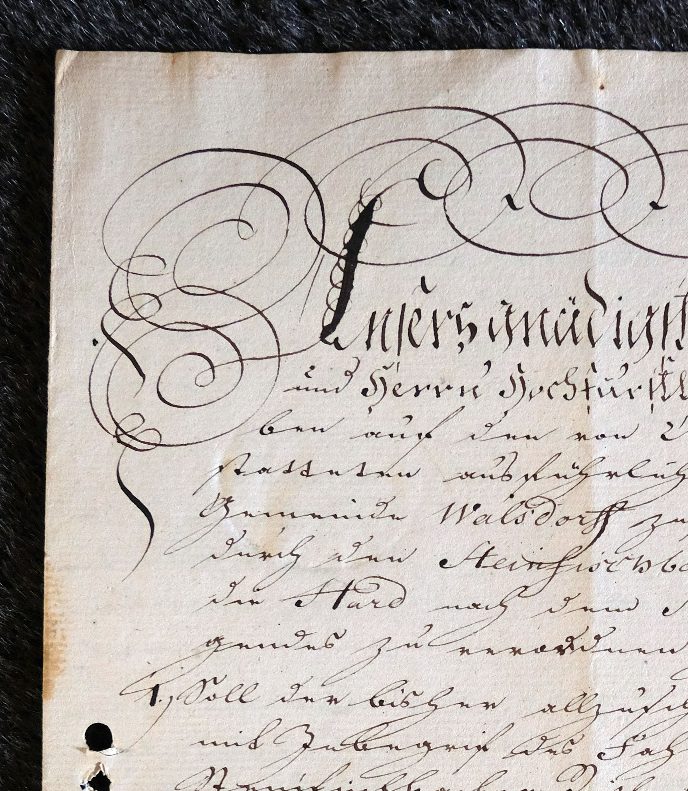 Unsers gnädigst
und Herrn Hochfürstl
ben auf den von
statteten ausführlich
Gemeinde Walsdorff zu
durch den Steinfischba
die Hard nach dem
gendes zu verordnen
1.) Soll der bisher allzusch
mit Inbegrif des Fah